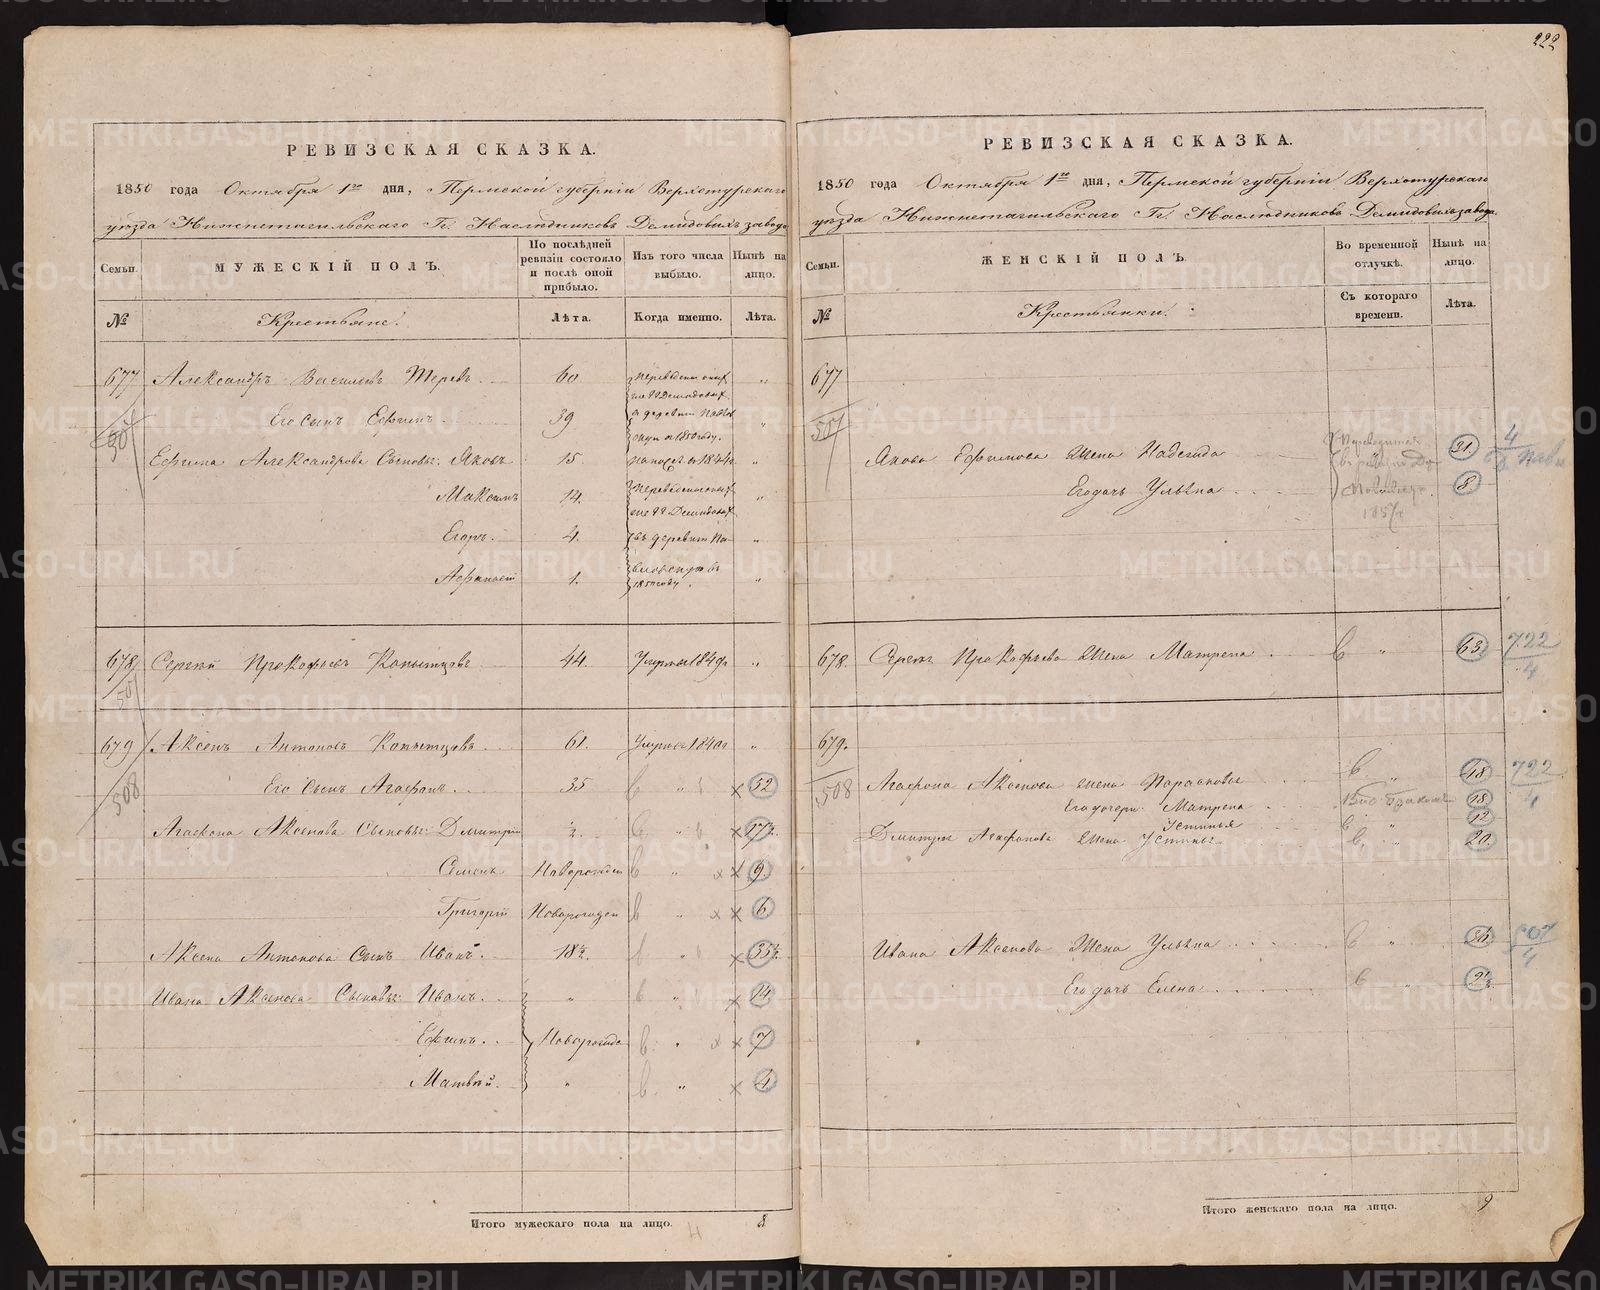 222
РЕВИЗСКАЯ СКАЗКА.
1850 года Октября 1го дня, Пермской губернiи Верхотурскаго
уѣзда Нижнетагильскаго Гг. Наслѣдниковъ Демидовыхъ завода
Семьи.
МУЖЕСКІЙ ПОЛЪ.
По послѣдней ревизіи состояло и послѣ оной прибыло.
Изъ того числа выбыло.
Нынѣ на лицо.
№
Крестьяне.
Лѣта.
Когда именно.
Лѣта.
677 Александръ Васильевъ 60 "
507 Его сынъ Ефимъ 39 "
Ефима Александрова Сыновья: Яковъ 15. "
Максимъ 14. "
Егоръ. 4. въ деревню "
Афанасій 1. "
678. Сергѣй Прокофьевъ Копытцовъ 44. Умеръ 1849 "
507
679 Аксенъ Антоновъ Копытцовъ 61. Умеръ 1840 "
508 Его Сынъ Агафонъ 35 " 52
Агафона Аксенова Сыновья: Дмитрій ½. " 17½
Семенъ Новорожден " 9.
Григорій Новорожден " 6
Аксена Антонова Сынъ Иванъ. 18½. " 35½
Ивана Аксенова Сыновья: Иванъ. " " 14
Ефимъ. Новорожде " 7
Матвѣй. " " 4
Итого мужескаго пола на лицо. 8
РЕВИЗСКАЯ СКАЗКА.
1850 года Октября 1го дня, Пермской губернiи Верхотурскаго
уѣзда Нижнетагильскаго Гг. Наслѣдниковъ Демидовыхъ завода
Семьи.
ЖЕНСКІЙ ПОЛЪ.
Во временной отлучкѣ.
Нынѣ на лицо.
№
Крестьянки.
Съ котораго времени.
Лѣта.
677
507
Якова Ефимова Жена Надежда 31. 4
Его дочь Ульяна 8.
678. Сергѣя Прокофьева Жена Матрена " 63. 722
4
679.
508 Агафона Аксенова жена Парасковья " 48 722
4
Его дочери: Матрена 18.
Устинья " 12
Дмитрія Агафонова Жена Устинья " 20.
Ивана Аксенова Жена Ульяна " 36 507
4
Его дочь Елена " 2½
Итого женскаго пола на лицо. 9
METRIKI.GASO-URAL.RU